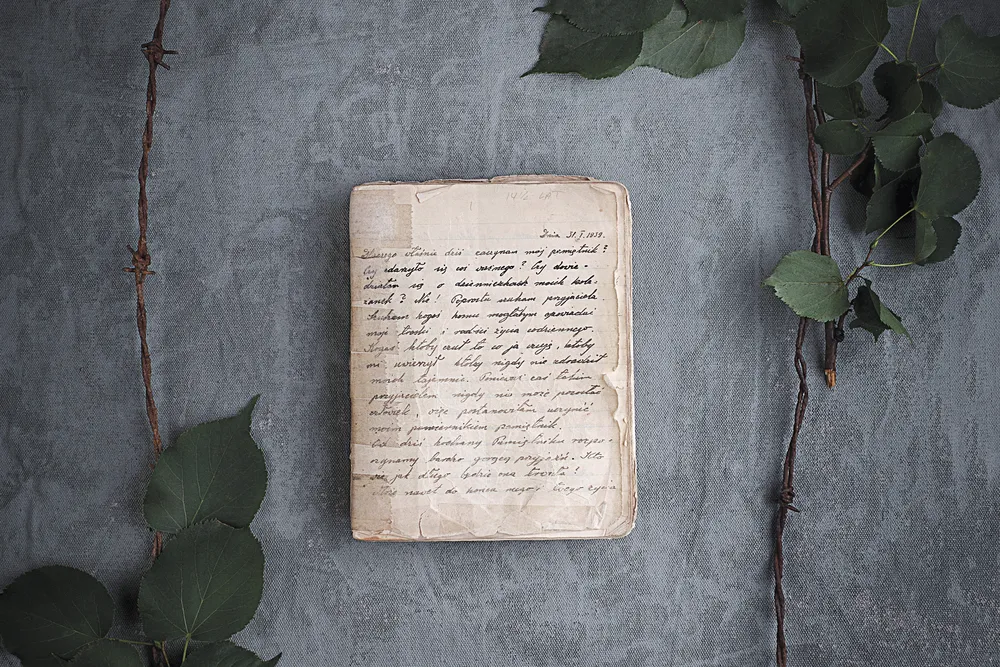 Dnia 31.I.1939.
Dlaczego właśnie dziś zaczynam mój pamiętnik?
Czy zdarzyło się coś ważnego? Czy dowie-
działam się o dzienniczkach moich kole-
żanek? Nie! Poprostu szukam przyjaciela.
Szukam kogoś komu mogłabym opowiadać
moje troski i radości życia codziennego.
Kogoś ktoby czuł to co ja czuję, ktoby
mi uwierzył ktoby nigdy nie zdradził
moich tajemnic. Ponieważ zaś takim
przyjacielem nigdy nie może pozostać
człowiek, więc postanowiłam uczynić
moim powiernikiem pamiętnik.
Od dziś kochany Pamiętniku rozpo-
czynamy bardzo gorącą przyjaźń. Kto
wie jak długo będzie ona trwała!
Może nawet do końca mego i twego życia